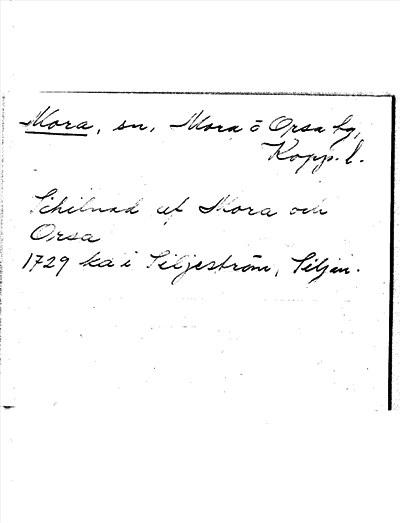 Mora, sn, Mora o Orsa hg,
Kopp. l.
Schilnad af Mora och
Orsa
1729 ka i Siljeström, Siljan.